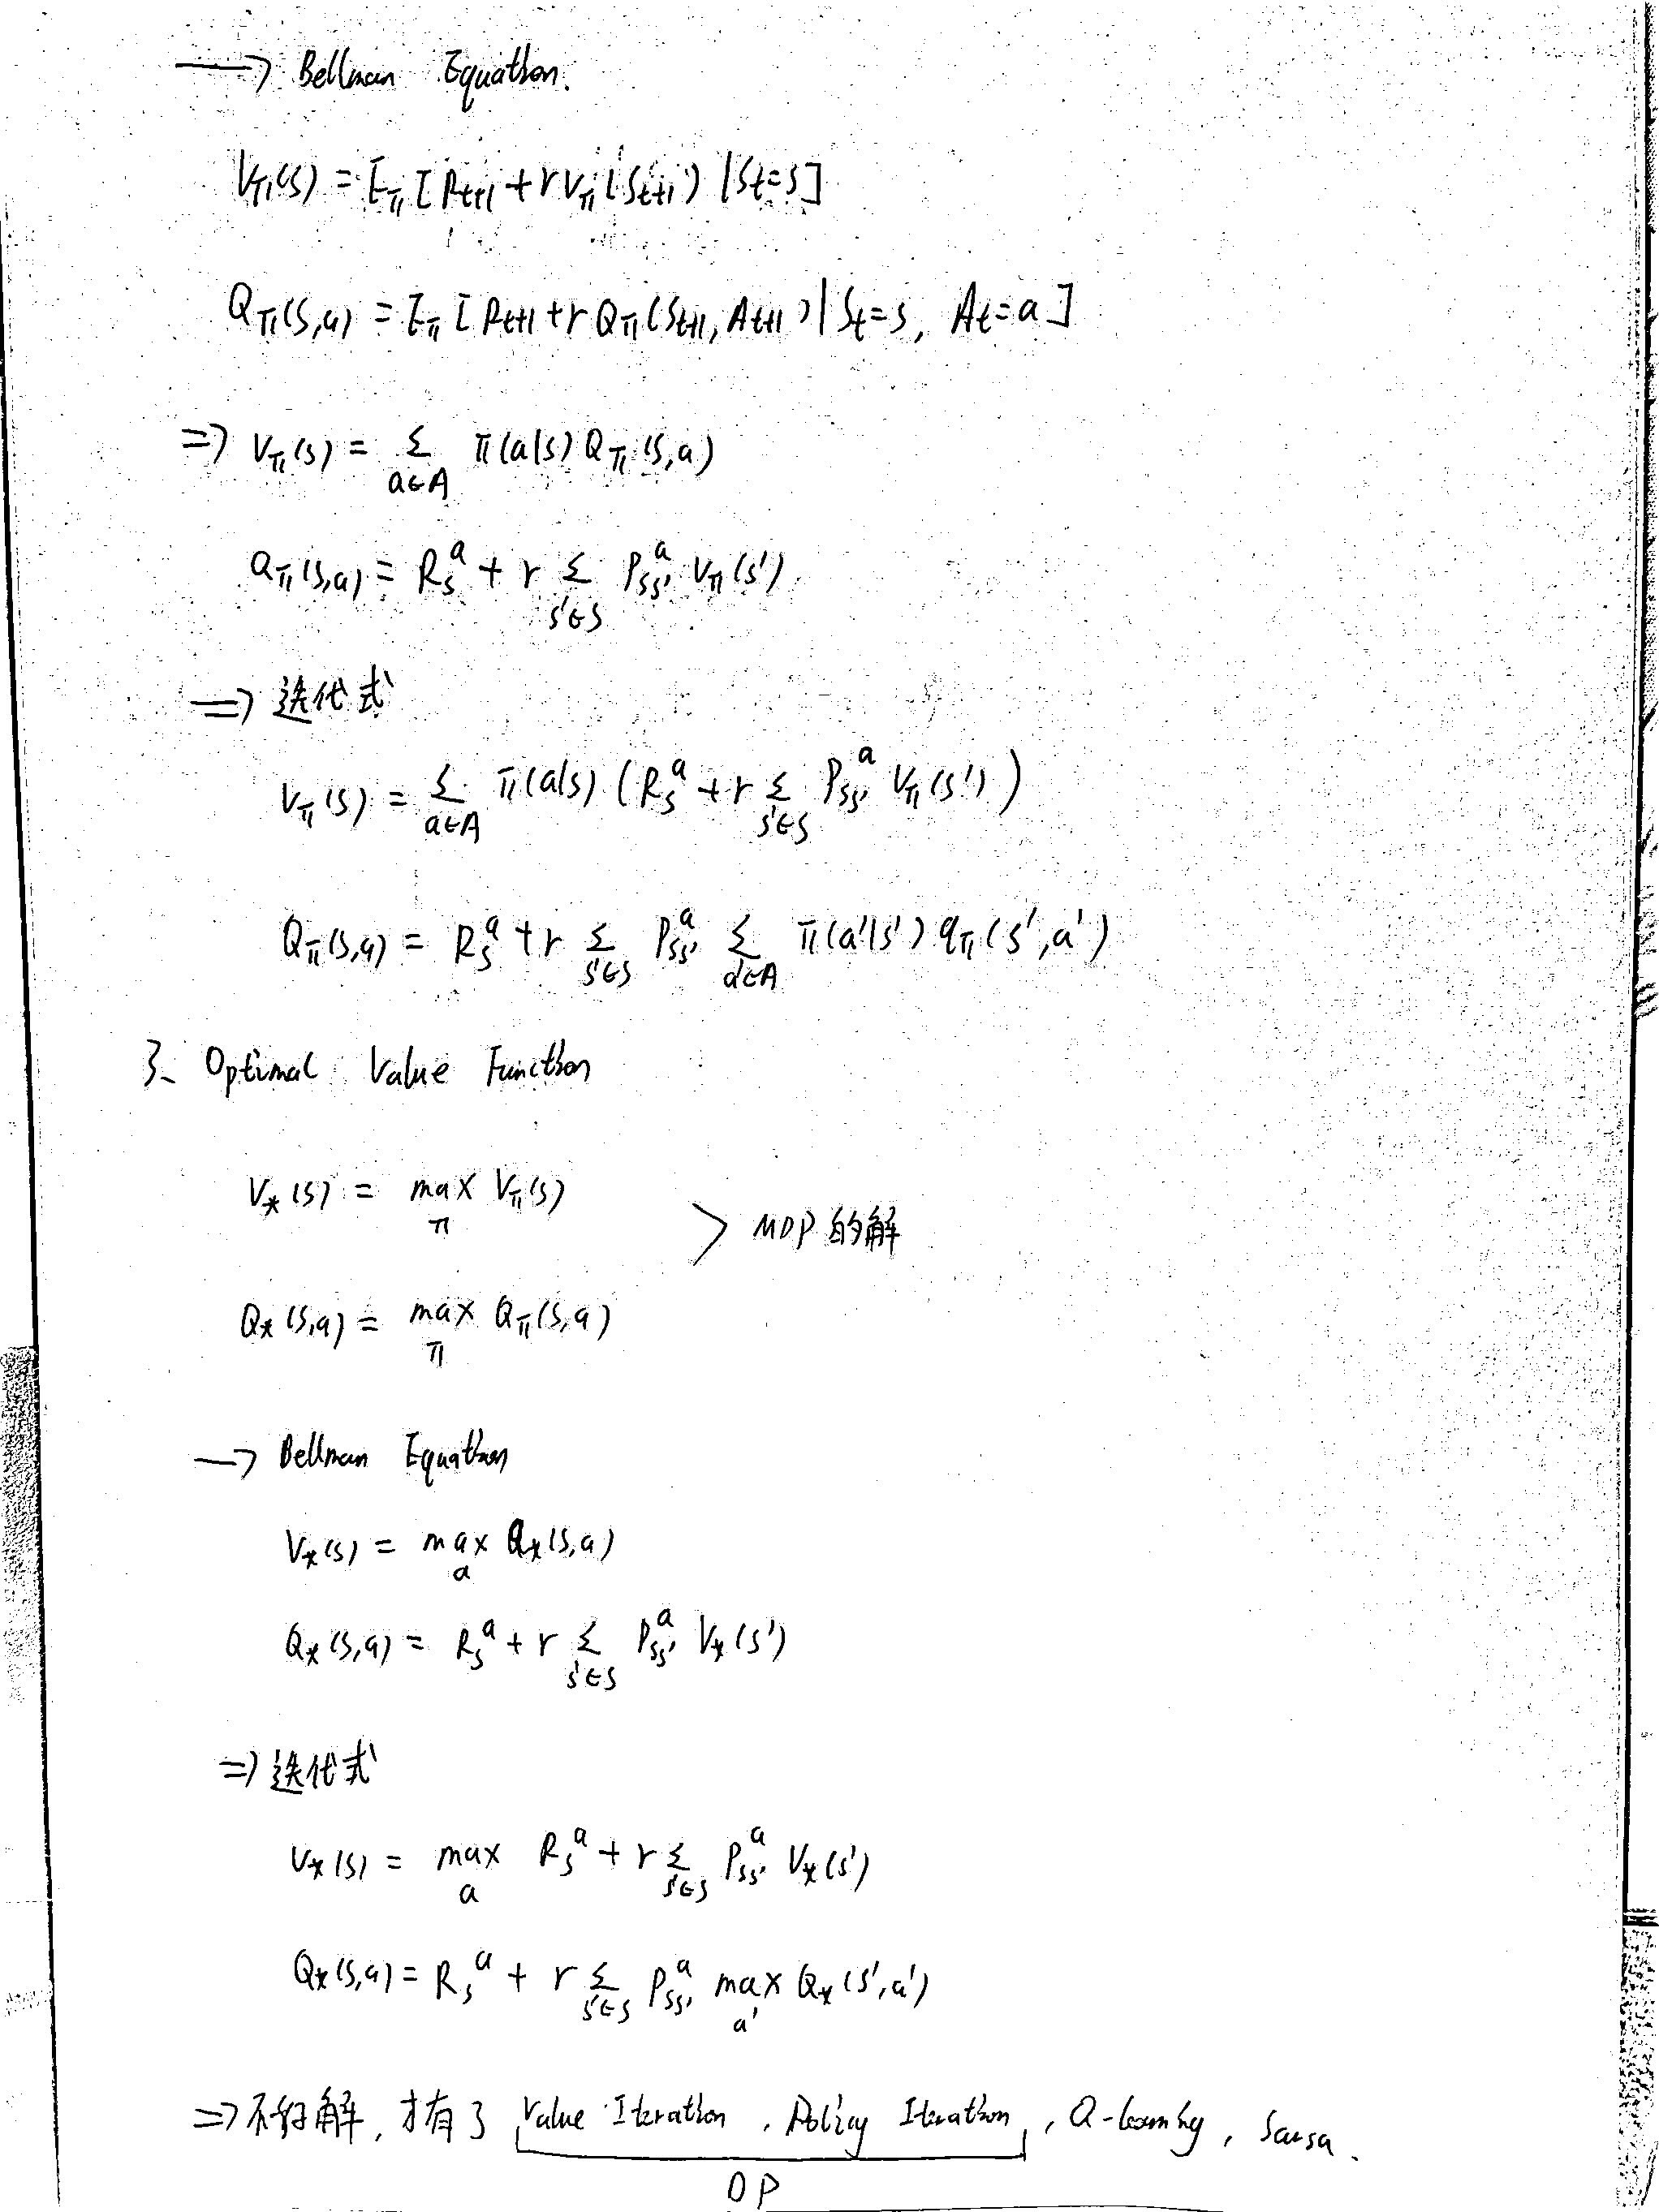 → Bellman Equation.
V_π(s) = E_π [R_{t+1} + r V_π(S_{t+1}) | S_t = s]
Q_π(s,a) = E_π [R_{t+1} + r Q_π(S_{t+1}, A_{t+1}) | S_t = s, A_t = a]
⇒ V_π(s) = Σ_{a∈A} π(a|s) Q_π(s,a)
Q_π(s,a) = R_s^a + r Σ_{s'∈S} P_{ss'}^a V_π(s')
⇒ 迭代式
V_π(s) = Σ_{a∈A} π(a|s) (R_s^a + r Σ_{s'∈S} P_{ss'}^a V_π(s'))
Q_π(s,a) = R_s^a + r Σ_{s'∈S} P_{ss'}^a Σ_{a'∈A} π(a'|s') q_π(s',a')
3、Optimal Value Function
V_*(s) = max_π V_π(s)
> MDP 的解
Q_*(s,a) = max_π Q_π(s,a)
→ Bellman Equation
V_*(s) = max_a Q_*(s,a)
Q_*(s,a) = R_s^a + r Σ_{s'∈S} P_{ss'}^a V_*(s')
⇒ 迭代式
V_*(s) = max_a R_s^a + r Σ_{s'∈S} P_{ss'}^a V_*(s')
Q_*(s,a) = R_s^a + r Σ_{s'∈S} P_{ss'}^a max_{a'} Q_*(s',a')
⇒ 不好解, 才有了 Value Iteration, Policy Iteration, Q-learning, Sarsa.
DP